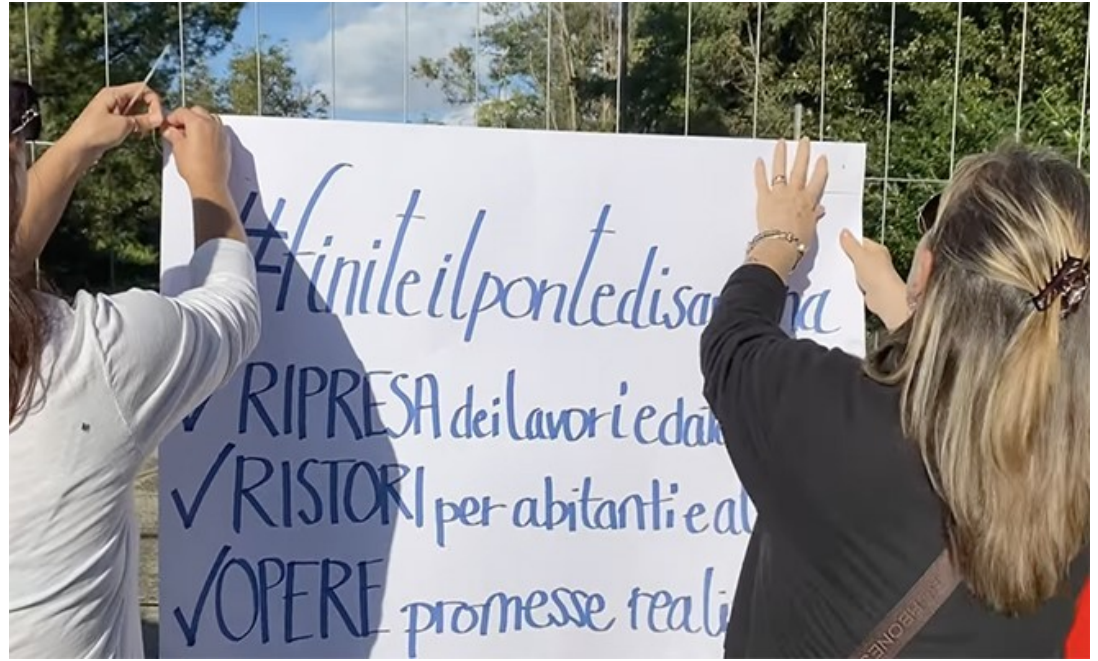 #finiteilpontedisa
✓ RIPRESA dei lavori e
✓ RISTORI per abitanti e
✓ OPERE promesse